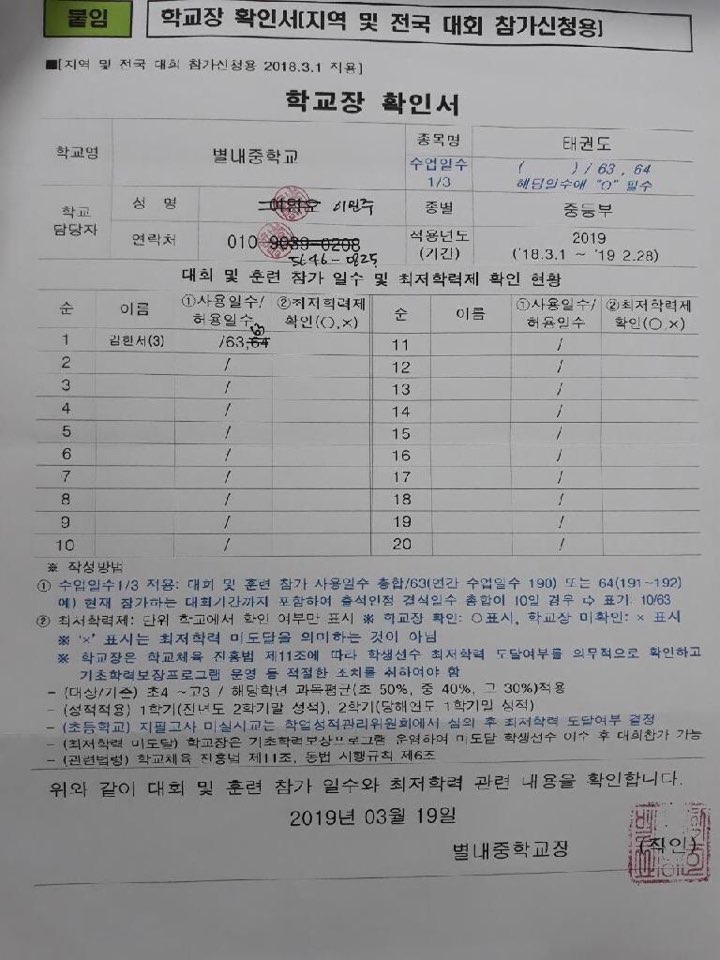 붙임
학교장 확인서[지역 및 전국 대회 참가신청용]
■[지역 및 전국 대회 참가신청용 2018.3.1 적용]
학교장 확인서
학교명 별내중학교 종목명 태권도
수업일수 1/3 ( ) / 63 , 64
해당일수에 "O" 필수
학교 담당자 성 명 이원주 종별 중등부
연락처 010 9039-0208 5646-0825 적용년도 (기간) 2019
('18.3.1 ~ '19 2.28)
대회 및 훈련 참가 일수 및 최저학력제 확인 현황
순 이름 ①사용일수/허용일수 ②최저학력제 확인(○,×) 순 이름 ①사용일수/허용일수 ②최저학력제 확인(○,×)
1 김현서(3) /63,64 63 11 /
2 / 12 /
3 / 13 /
4 / 14 /
5 / 15 /
6 / 16 /
7 / 17 /
8 / 18 /
9 / 19 /
10 / 20 /
※ 작성방법
① 수업일수1/3 적용: 대회 및 훈련 참가 사용일수 총합/63(연간 수업일수 190) 또는 64(191~192)
예) 현재 참가하는 대회기간까지 포함하여 출석인정 결석일수 총합이 10일 경우 ⇨ 표기: 10/63
② 최저학력제: 단위 학교에서 확인 여부만 표시 ※ 학교장 확인: ○표시, 학교장 미확인: × 표시
※ '×' 표시는 최저학력 미도달을 의미하는 것이 아님
※ 학교장은 학교체육 진흥법 제11조에 따라 학생선수 최저학력 도달여부를 의무적으로 확인하고
기초학력보장프로그램 운영 등 적절한 조치를 취하여야 함
- (대상/기준) 초4 ~고3 / 해당학년 과목평균(초 50%, 중 40%, 고 30%)적용
- (성적적용) 1학기(전년도 2학기말 성적), 2학기(당해연도 1학기말 성적)
- (초등학교) 지필고사 미실시교는 학업성적관리위원회에서 심의 후 최저학력 도달여부 결정
- (최저학력 미도달) 학교장은 기초학력보장프로그램 운영하여 미도달 학생선수 이수 후 대회참가 가능
- (관련법령) 학교체육 진흥법 제11조, 동법 시행규칙 제6조
위와 같이 대회 및 훈련 참가 일수와 최저학력 관련 내용을 확인합니다.
2019년 03월 19일
별내중학교장 (직인)